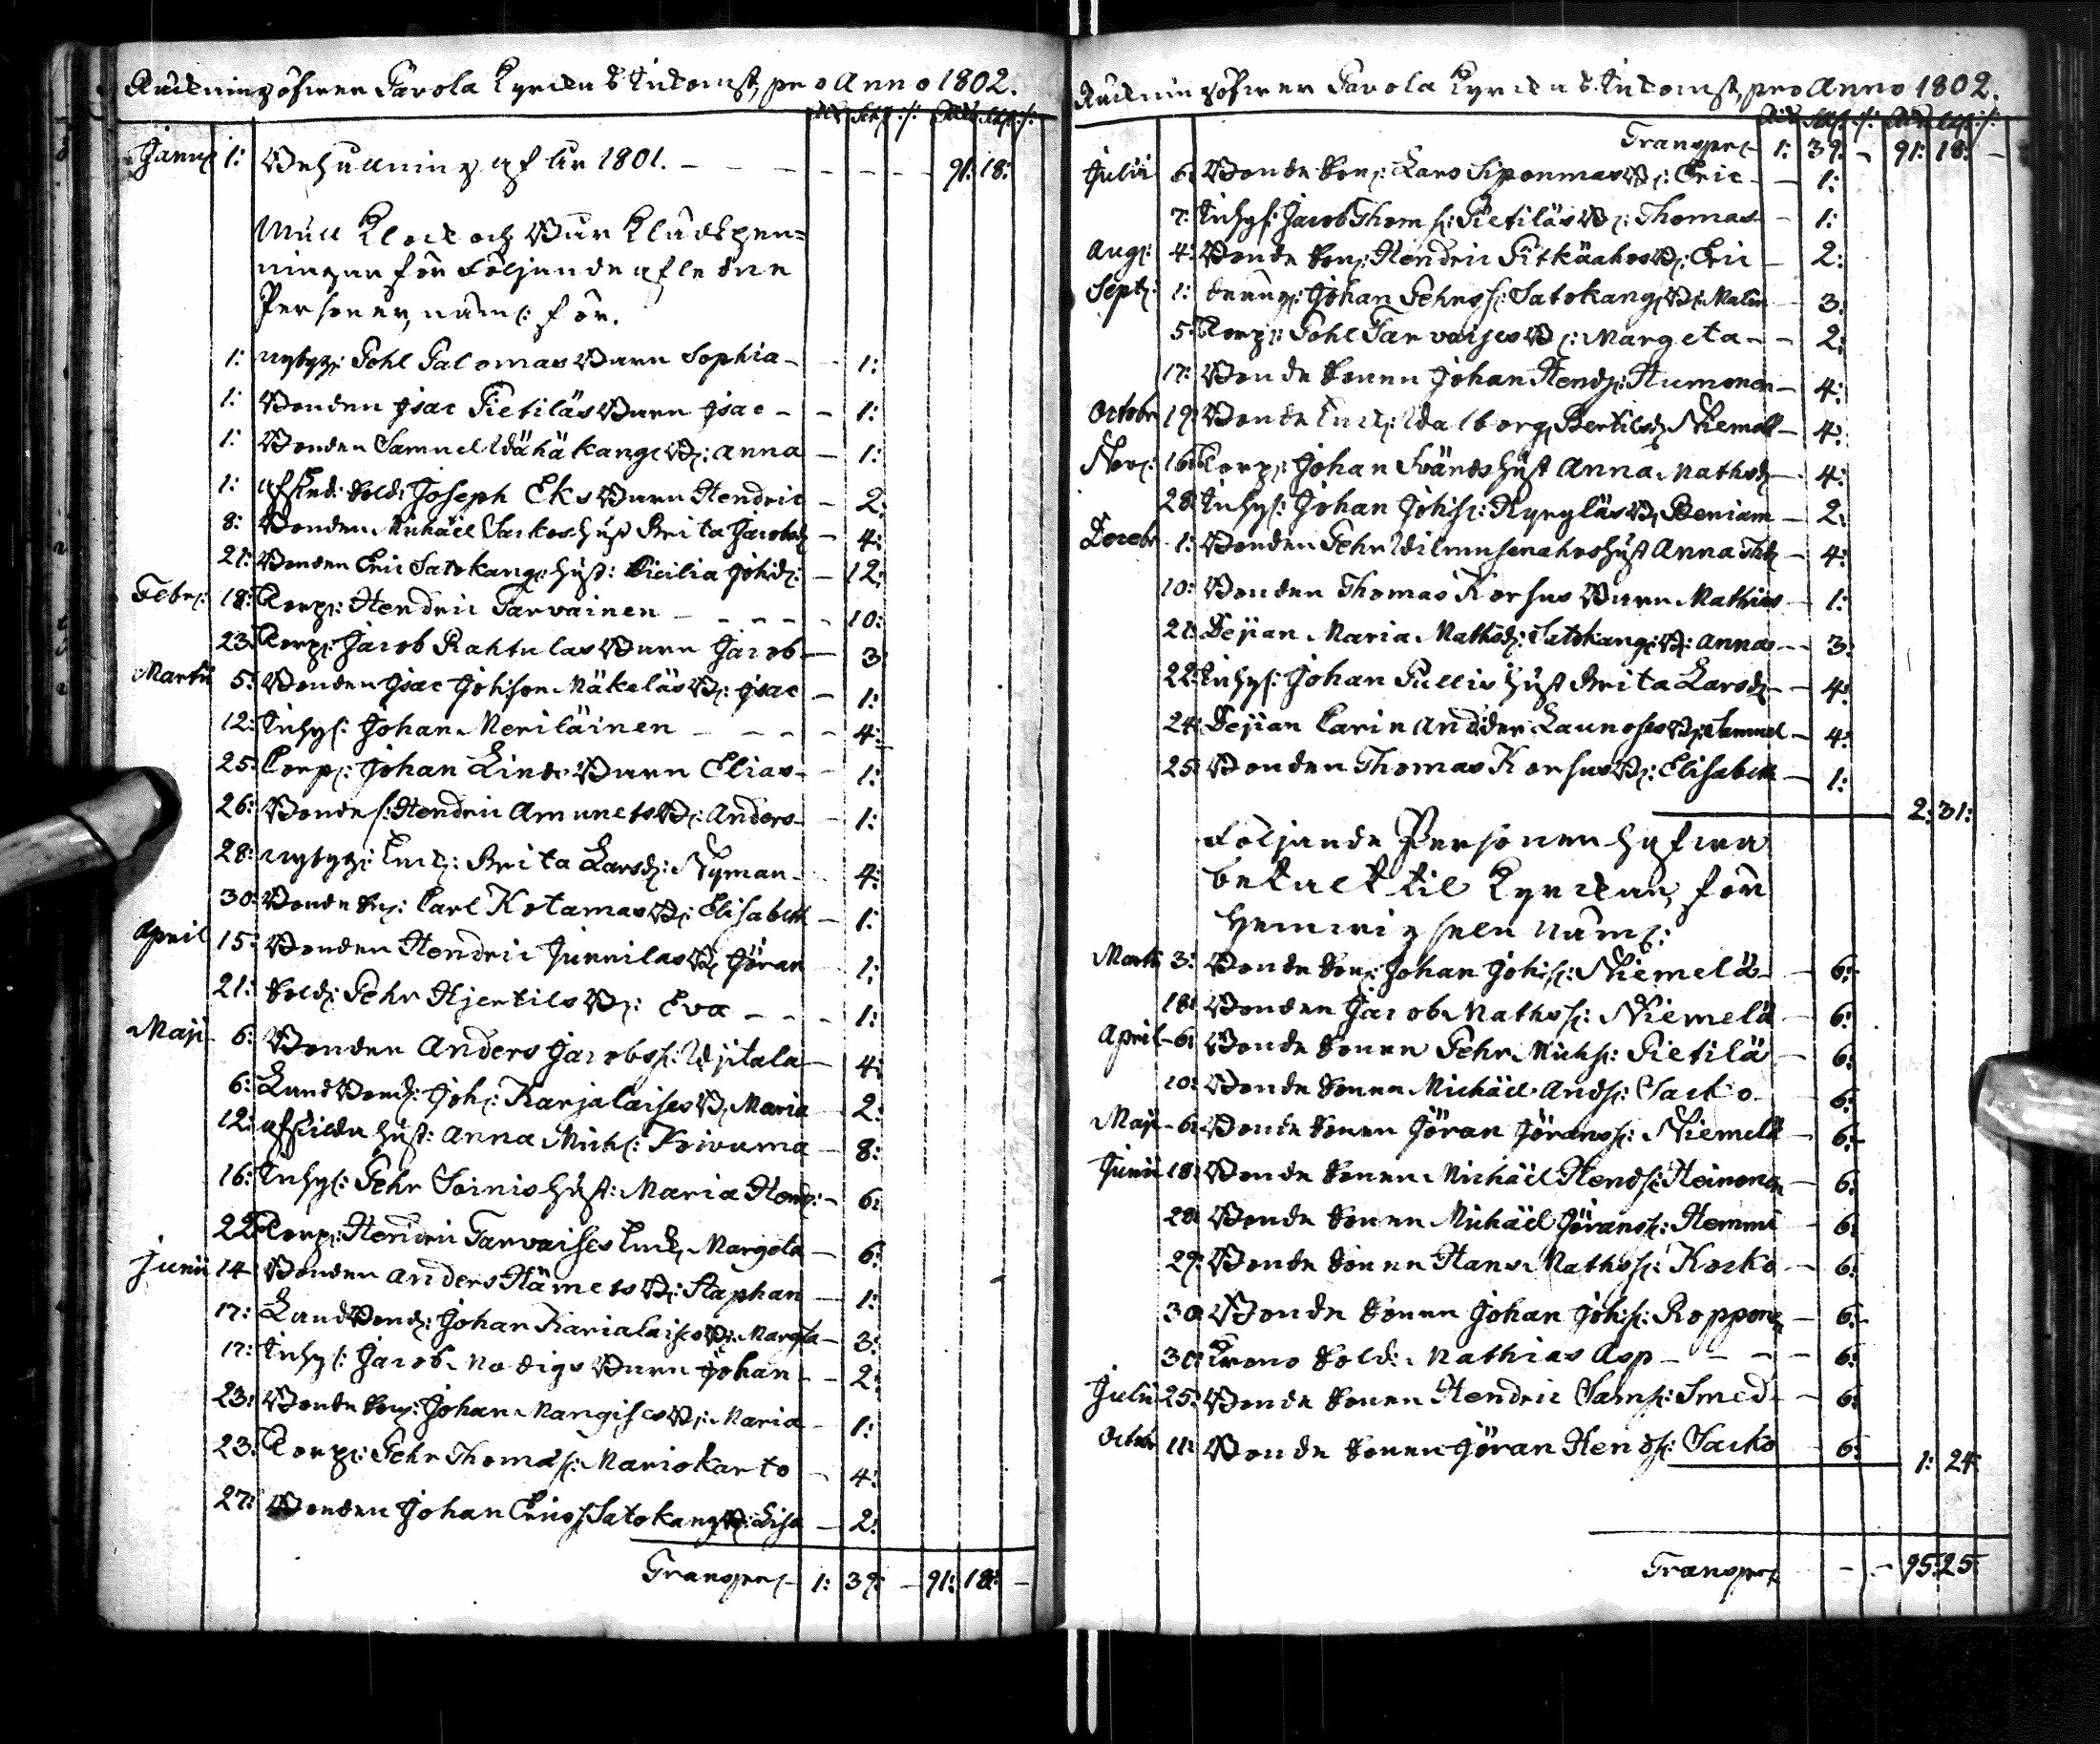 Räckning öfwer Pavola Kyrckas Inkomst, pro Anno 1802.
Rdr Sk: :/: Rdr Sk: :/:
Janu: 1: Behållning af år 1801. - - - - - - 91: 18:
Mull Klock och Bår Klädspen=
ningar för följande aflidne
Personer, näml: för.
1: nybyg: Pehl Palomas Barn Sophia - - 1:
1: Bonden Isac Pietiläs Barn Isac - - 1:
1: Bonden Samuel Wähäkang: B: Anna - 1:
1: afsked: Sold: Joseph Eks Barn Hendric - 2:
8: Bonden Michäel Sarkos Hust Brita Jacobsd: - 4:
21: Bonden Eric Satokang: Hust: Cicilia Johsd: - 12:
Febr: 18: Torp: Hendric Tarvainen - - - - - 10:
23: Torp: Jacob Rahtulas Barn Jacob - 3
Martii 5: Bonden Isac Johsson Mäkeläs B: Isac - 1:
12: Inhys: Johan Meriläinen - - - - 4:
25: Corp: Johan Linds Barn Elias - - 1:
26: Bonde s: Hendric Amunets B: Anders - - 1:
28: nybyg: Enck: Brita Larsd: Nyman - - 4:
30: Bonde Son: Carl Kotamas B: Elisabeth - 1:
April 15: Bonden Hendric Junnilas B: Göran - 1:
21: Sold: Pehr Hjertils B: Eva - - - 1:
Maji 6: Bonden Anders Jacobss: Ypitala - 4:
6: Landbond: Joh: Karjalaises B: Maria - 2:
12: afskilda Hust: Anna Mich: Koivuma - 8:
16: Inhys: Pehr Soinis Hust: Maria Hend: - 6:
22: Torp: Hendric Tarvaises Enck: Margeta - 6:
Junii 14 Bonden Anders Hämets B: Staphan - 1:
17: Landbond: Johan Karialaises B: Margta - 3:
17: Inhys: Jacob Nodigs Barn Johan - - 2:
23: Bonde Son: Johan Mangises B: Maria - 1:
23: Torp: Pehr Thomas: Mariokanto - 4:
27: Bonden Johan Ericss: Satokang B: Lisa - 2:
Transport 1: 39: - 91: 18: -
Räckning öfwer Pavola Kyrckas Inkomst, pro Anno 1802.
Rdr Sk: :/: Rdr Sk: :/:
Transport 1: 39: - 91: 18: -
Julii 6: Bonde Son: Lars Siponmas B: Eric - - 1:
7: Inhys: Jacob Thoms: Pietiläs B: Thomas - 1:
Aug: 4: Bonde Son: Hendric Pitkäahos B: Eric - 2:
Sept: 1: dräng: Johan Pehrss: Satokang: B: Malin - 3:
5: Torp: Pehl Tarvaises B: Margeta - - 2:
17: Bonde Sonen Johan Hends: Humonen - 4:
Octobr 19: Bonde Enck: Walborg Bertilsd: Niemelä - 4:
Nov: 16: Torp: Johan Svands Hust Anna Mathsd: - 4:
28: Inhys: Johan Johss: Kyrgläs B: Beniam - 2:
Decebr 1: Bonden Pehr Wilmusenahos Hust Anna Thd: - 4:
10: Bonden Thomas Korhus Barn Mathias - 1:
21: Pejian Maria Mathsd: Satokang: B: Annas - - 3:
22: Inhys: Johan Pullis Hust Brita Larsd: - - 4:
24: Pejian Carin Andder Launoses B: Samuel - 4:
25: Bonden Thomas Korhus B: Elisabeth - 1:
2: 31:
Följande Personer hafwa
betalt til Kyrckan, för
hemwigseln näml:
Martii 3: Bonde Son: Johan Johss: Niemelä - - 6:
18: Bonden Jacob Mathss: Niemelä - 6:
April 6: Bonde Sonen Pehr Michs: Pietilä - 6:
10: Bonde Sonen Michäel Ands: Sarko - 6:
Maji 6: Bonde Sonen Göran Göranss: Niemelä - 6:
Junii 18: Bonde Sonen Michäel Hends: Heinonen - 6:
28: Bonde Sonen Michäel Göranss: Hemmi - 6:
29: Bonde Sonen Hans Mathss: Korko - 6:
30: Bonde Sonen Johan Johss:Ropponen - 6:
30: Krono Sold: Mathias Asp - - - - 6:
Julii 25: Bonde Sonen Hendric Sams: Smed - - 6:
Octobr 11: Bonde Sonen Göran Hends: Sarko - 6:
1: 24:
Transport - - 95: 25: